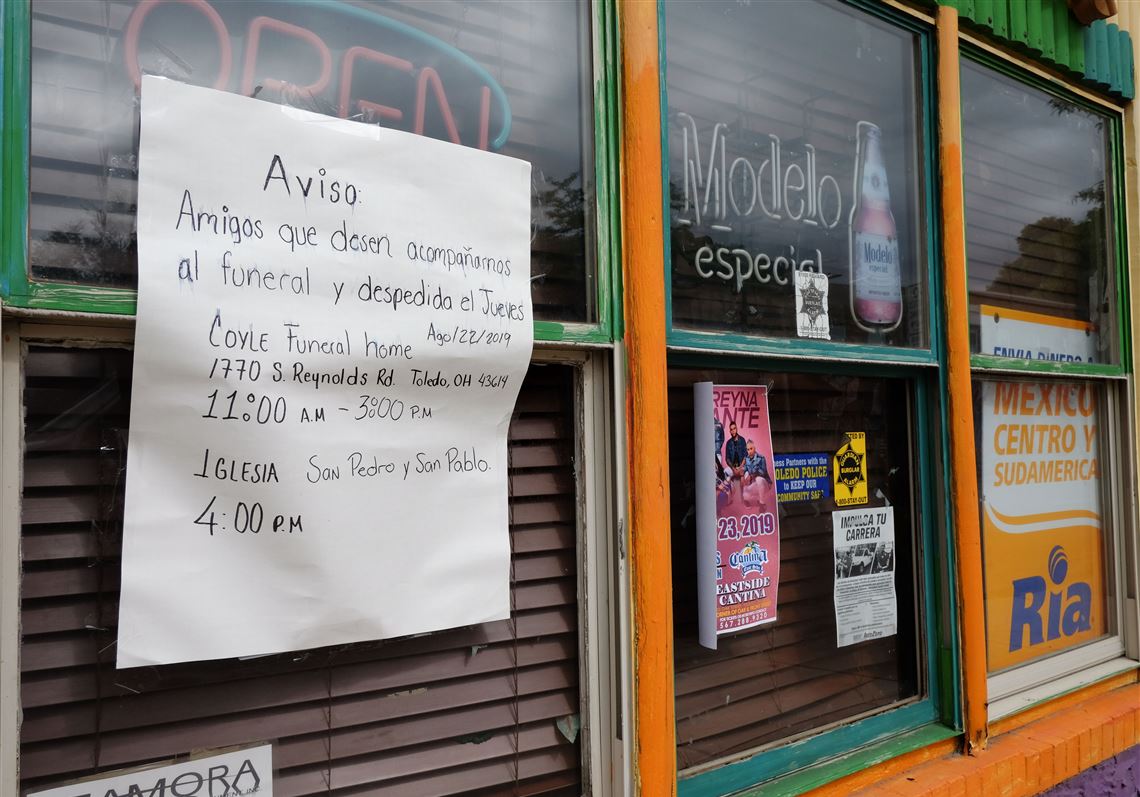 OPEN
Aviso:
Amigos que desen acompañarnos
al funeral y despedida el Jueves
Ago/22/2019
COYLE Funeral home
1770 S. Reynolds Rd. Toledo, OH 43614
11:00 A.M - 3:00 P.M
IGLESIA San Pedro y San Pablo.
4:00 P.M
AMORA
Modelo
especial
Modelo
especial
REYNA
ANTE
23, 2019
Cantina
EASTSIDE
CANTINA
567.288.9320
ness Partners with the
OLEDO POLICE
to KEEP OUR
COMMUNITY SAF
BURGLAR
ALARM
1-800-STAY-OUT
IMPULSA TU
CARRERA
AutoZone
ENVIA DINERO A
MEXICO
CENTRO Y
SUDAMERICA
Ria